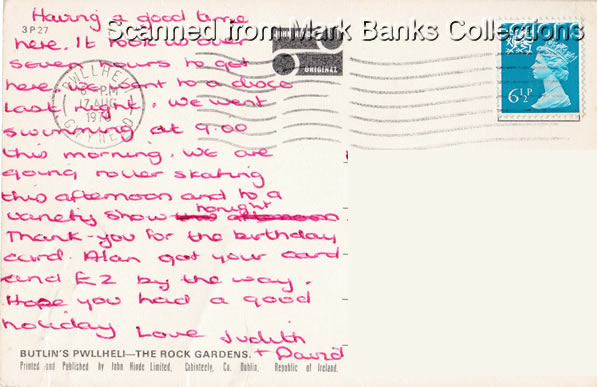 Scanned from Mark Banks Collections
3P27
Having a good time
here. It took us over
seven hours to get
here. We went to a disco
last night. We went
swimming at 9.00
this morning. We are
going roller skating
this afternoon and to a
variety show tonight
Thank-you for the birthday
card. Alan got your card
and £2 by the way.
Hope you had a good
holiday Love Judith
+ David
PWLLHELI
PM
17 AUG
ORIGINAL
6½P
BUTLIN'S PWLLHELI—THE ROCK GARDENS.
Printed and Published by John Hinde Limited, Cabinteely, Co. Dublin, Republic of Ireland.